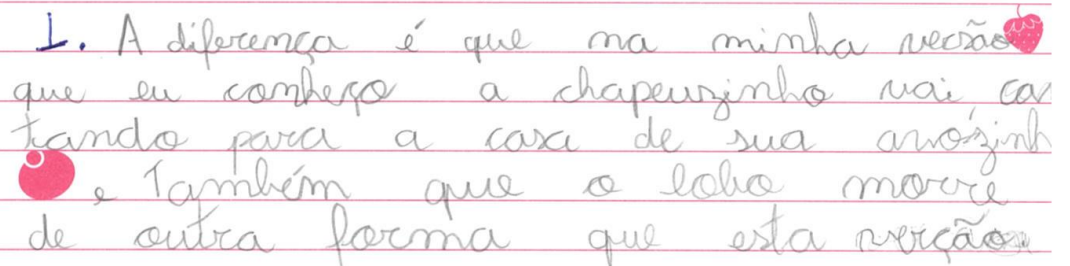 1. A diferença é que na minha verzão
que eu conheço a chapeuzinho vai can
tando para a casa de sua avózinh
e Também que o lobo morre
de outra forma que esta verção.